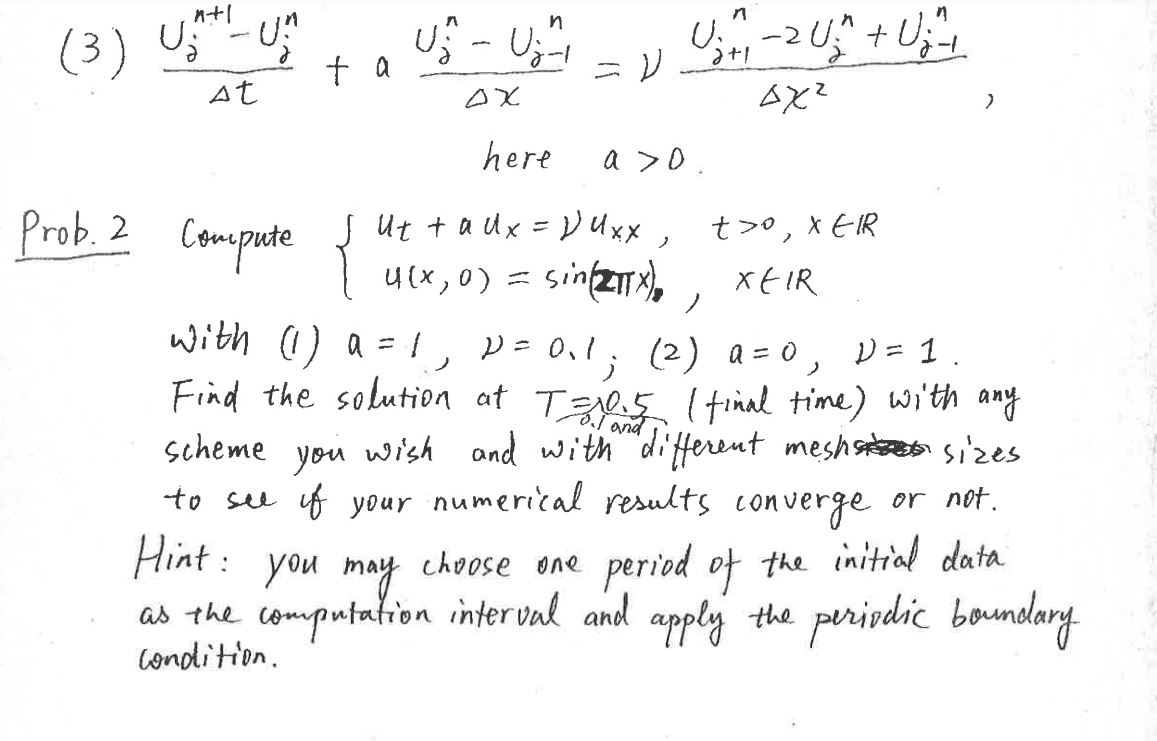 (3) \frac{U_j^{n+1} - U_j^n}{\Delta t} + a \frac{U_j^n - U_{j-1}^n}{\Delta x} = \nu \frac{U_{j+1}^n - 2U_j^n + U_{j-1}^n}{\Delta x^2},
here a > 0.
Prob. 2 Compute { u_t + a u_x = ν u_{xx}, t>0, x ∈ ℝ
u(x,0) = sin(2πx), , x ∈ ℝ
with (1) a = 1, ν = 0.1; (2) a = 0, ν = 1.
Find the solution at T = 0.1 and 0.5 (final time) with any
scheme you wish and with different mesh sizes
to see if your numerical results converge or not.
Hint: you may choose one period of the initial data
as the computation interval and apply the periodic boundary
condition.